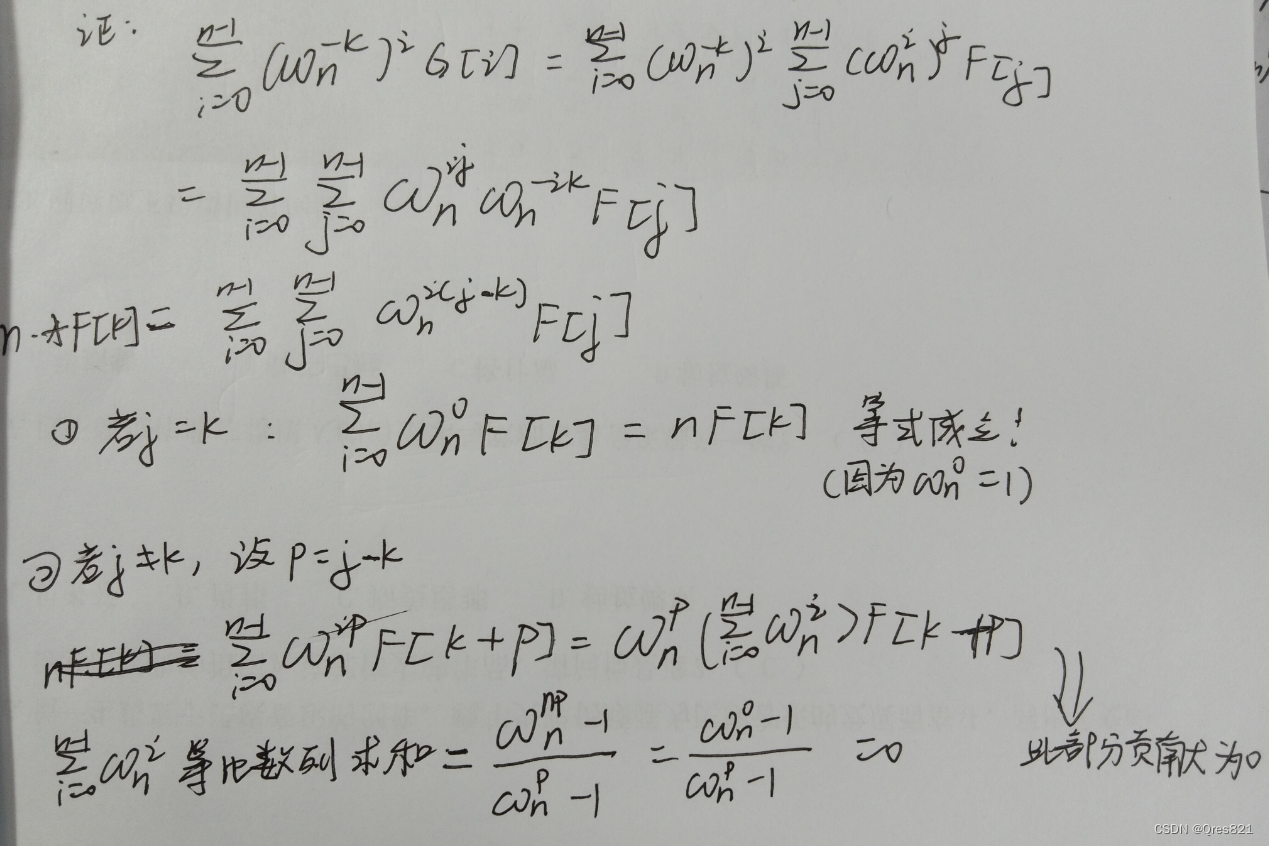 证:
\sum_{i=0}^{n-1} (ω_n^{-k})^i G[i] = \sum_{i=0}^{n-1} (ω_n^{-k})^i \sum_{j=0}^{n-1} (ω_n^i)^j F[j]
= \sum_{i=0}^{n-1} \sum_{j=0}^{n-1} ω_n^{ij} ω_n^{-ik} F[j]
n·F[k] = \sum_{i=0}^{n-1} \sum_{j=0}^{n-1} ω_n^{i(j-k)} F[j]
① 若j=k : \sum_{i=0}^{n-1} ω_n^0 F[k] = nF[k] 等式成立!
(因为ω_n^0=1)
② 若j≠k, 设 P=j-k
\sum_{i=0}^{n-1} ω_n^{ip} F[k+p] = ω_n^p (\sum_{i=0}^{n-1} ω_n^i) F[k+p]
\sum_{i=0}^{n-1} ω_n^i 等比数列求和 = \frac{ω_n^{np}-1}{ω_n^p-1} = \frac{ω_n^0-1}{ω_n^p-1} =0
⇓ 此部分贡献为0
CSDN @Qres821